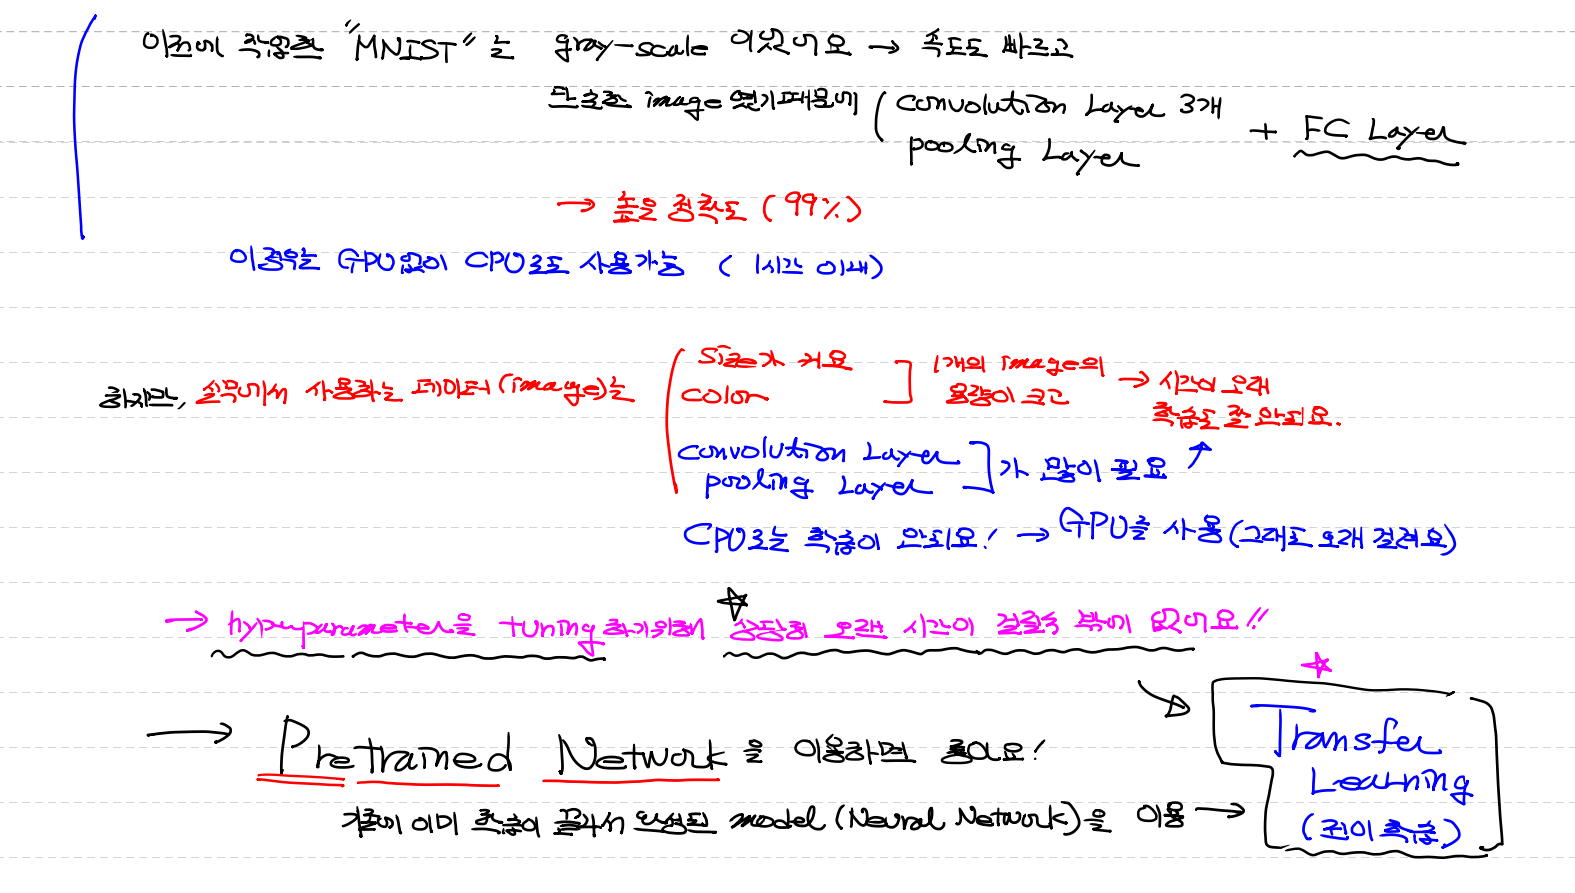 이전에 작업한 "MNIST"는 gray-scale 이었어요 → 속도도 빠르고
단순한 image 였기때문에 ( convolution Layer 3개
pooling Layer + FC Layer
→ 높은 정확도 (99%)
이경우는 GPU없이 CPU로도 사용가능 ( 1시간 이내)
하지만, 실무에서 사용하는 데이터(image)는
size가 커요
color
1개의 image의
용량이 크고
→ 시간이 오래
학습도 잘 안되요.
convolution Layer
pooling Layer
가 많이 필요
CPU로는 학습이 안되요! → GPU를 사용 (그래도 오래 걸려요)
→ hyperparameter을 tuning하기위해 상당히 오랜 시간이 걸릴수 밖에 없어요!!
→ Pretrained Network을 이용하면 좋아요!
기존에 이미 학습이 끝나서 완성된 model (Neural Network)을 이용 →
Transfer
Learning
(전이학습)